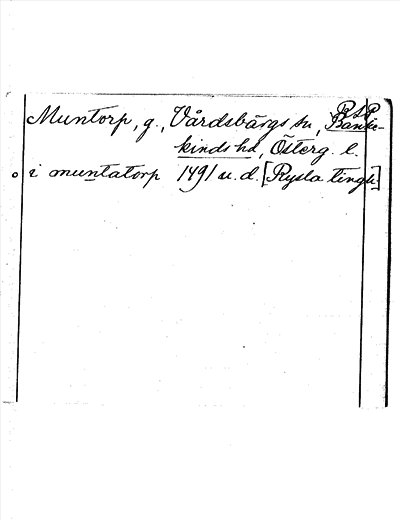 RSP
Muntorp, g., Vårdsbärgs sn, Banke-
kinds hd, Österg. l.
i muntatorp 1491 u. d. [Rysla tingb]